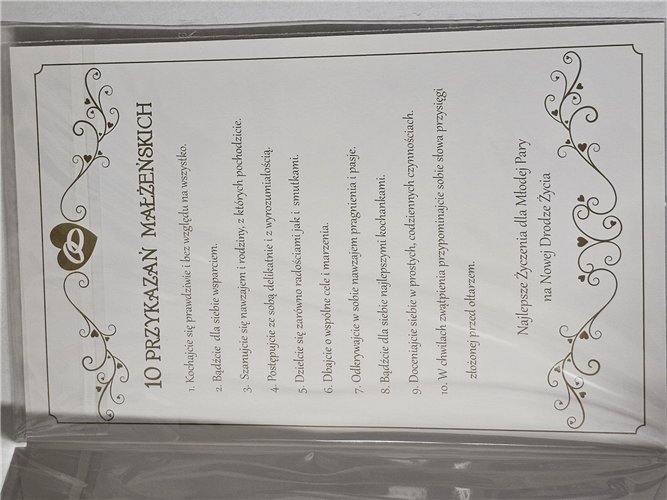 10 PRZYKAZAŃ MAŁŻEŃSKICH
1. Kochajcie się prawdziwie i bez względu na wszystko.
2. Bądźcie dla siebie wsparciem.
3. Szanujcie się nawzajem i rodziny, z których pochodzicie.
4. Postępujcie ze sobą delikatnie i z wyrozumiałością.
5. Dzielcie się zarówno radościami jak i smutkami.
6. Dbajcie o wspólne cele i marzenia.
7. Odkrywajcie w sobie nawzajem pragnienia i pasje.
8. Bądźcie dla siebie najlepszymi kochankami.
9. Doceniajcie siebie w prostych, codziennych czynnościach.
10. W chwilach zwątpienia przypominajcie sobie słowa przysięgi
złożonej przed ołtarzem.
Najlepsze Życzenia dla Młodej Pary
na Nowej Drodze Życia